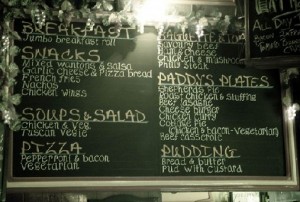 BREAKFAST
Jumbo breakfast roll
SNACKS
Mixed wuntons & salsa
Garlic cheese & Pizza bread
French fries
Nachos
Chicken wings
SOUPS & SALAD
Chicken & veg
Tuscan vegie
PIZZA
Pepperoni & bacon
Vegetarian
Savoury beef
Cheese
Chicken & mushroom
Philli steak
PADDY'S PLATES
Shepherds Pie
Roast chicken & stuffing
Beef lasagne
Chicken curry
Cottage Pie
Chicken &
(chicken & bacon-vegetarian)
Beef casserole
PUDDING
Bread & butter
Pud with custard
ALL DAY